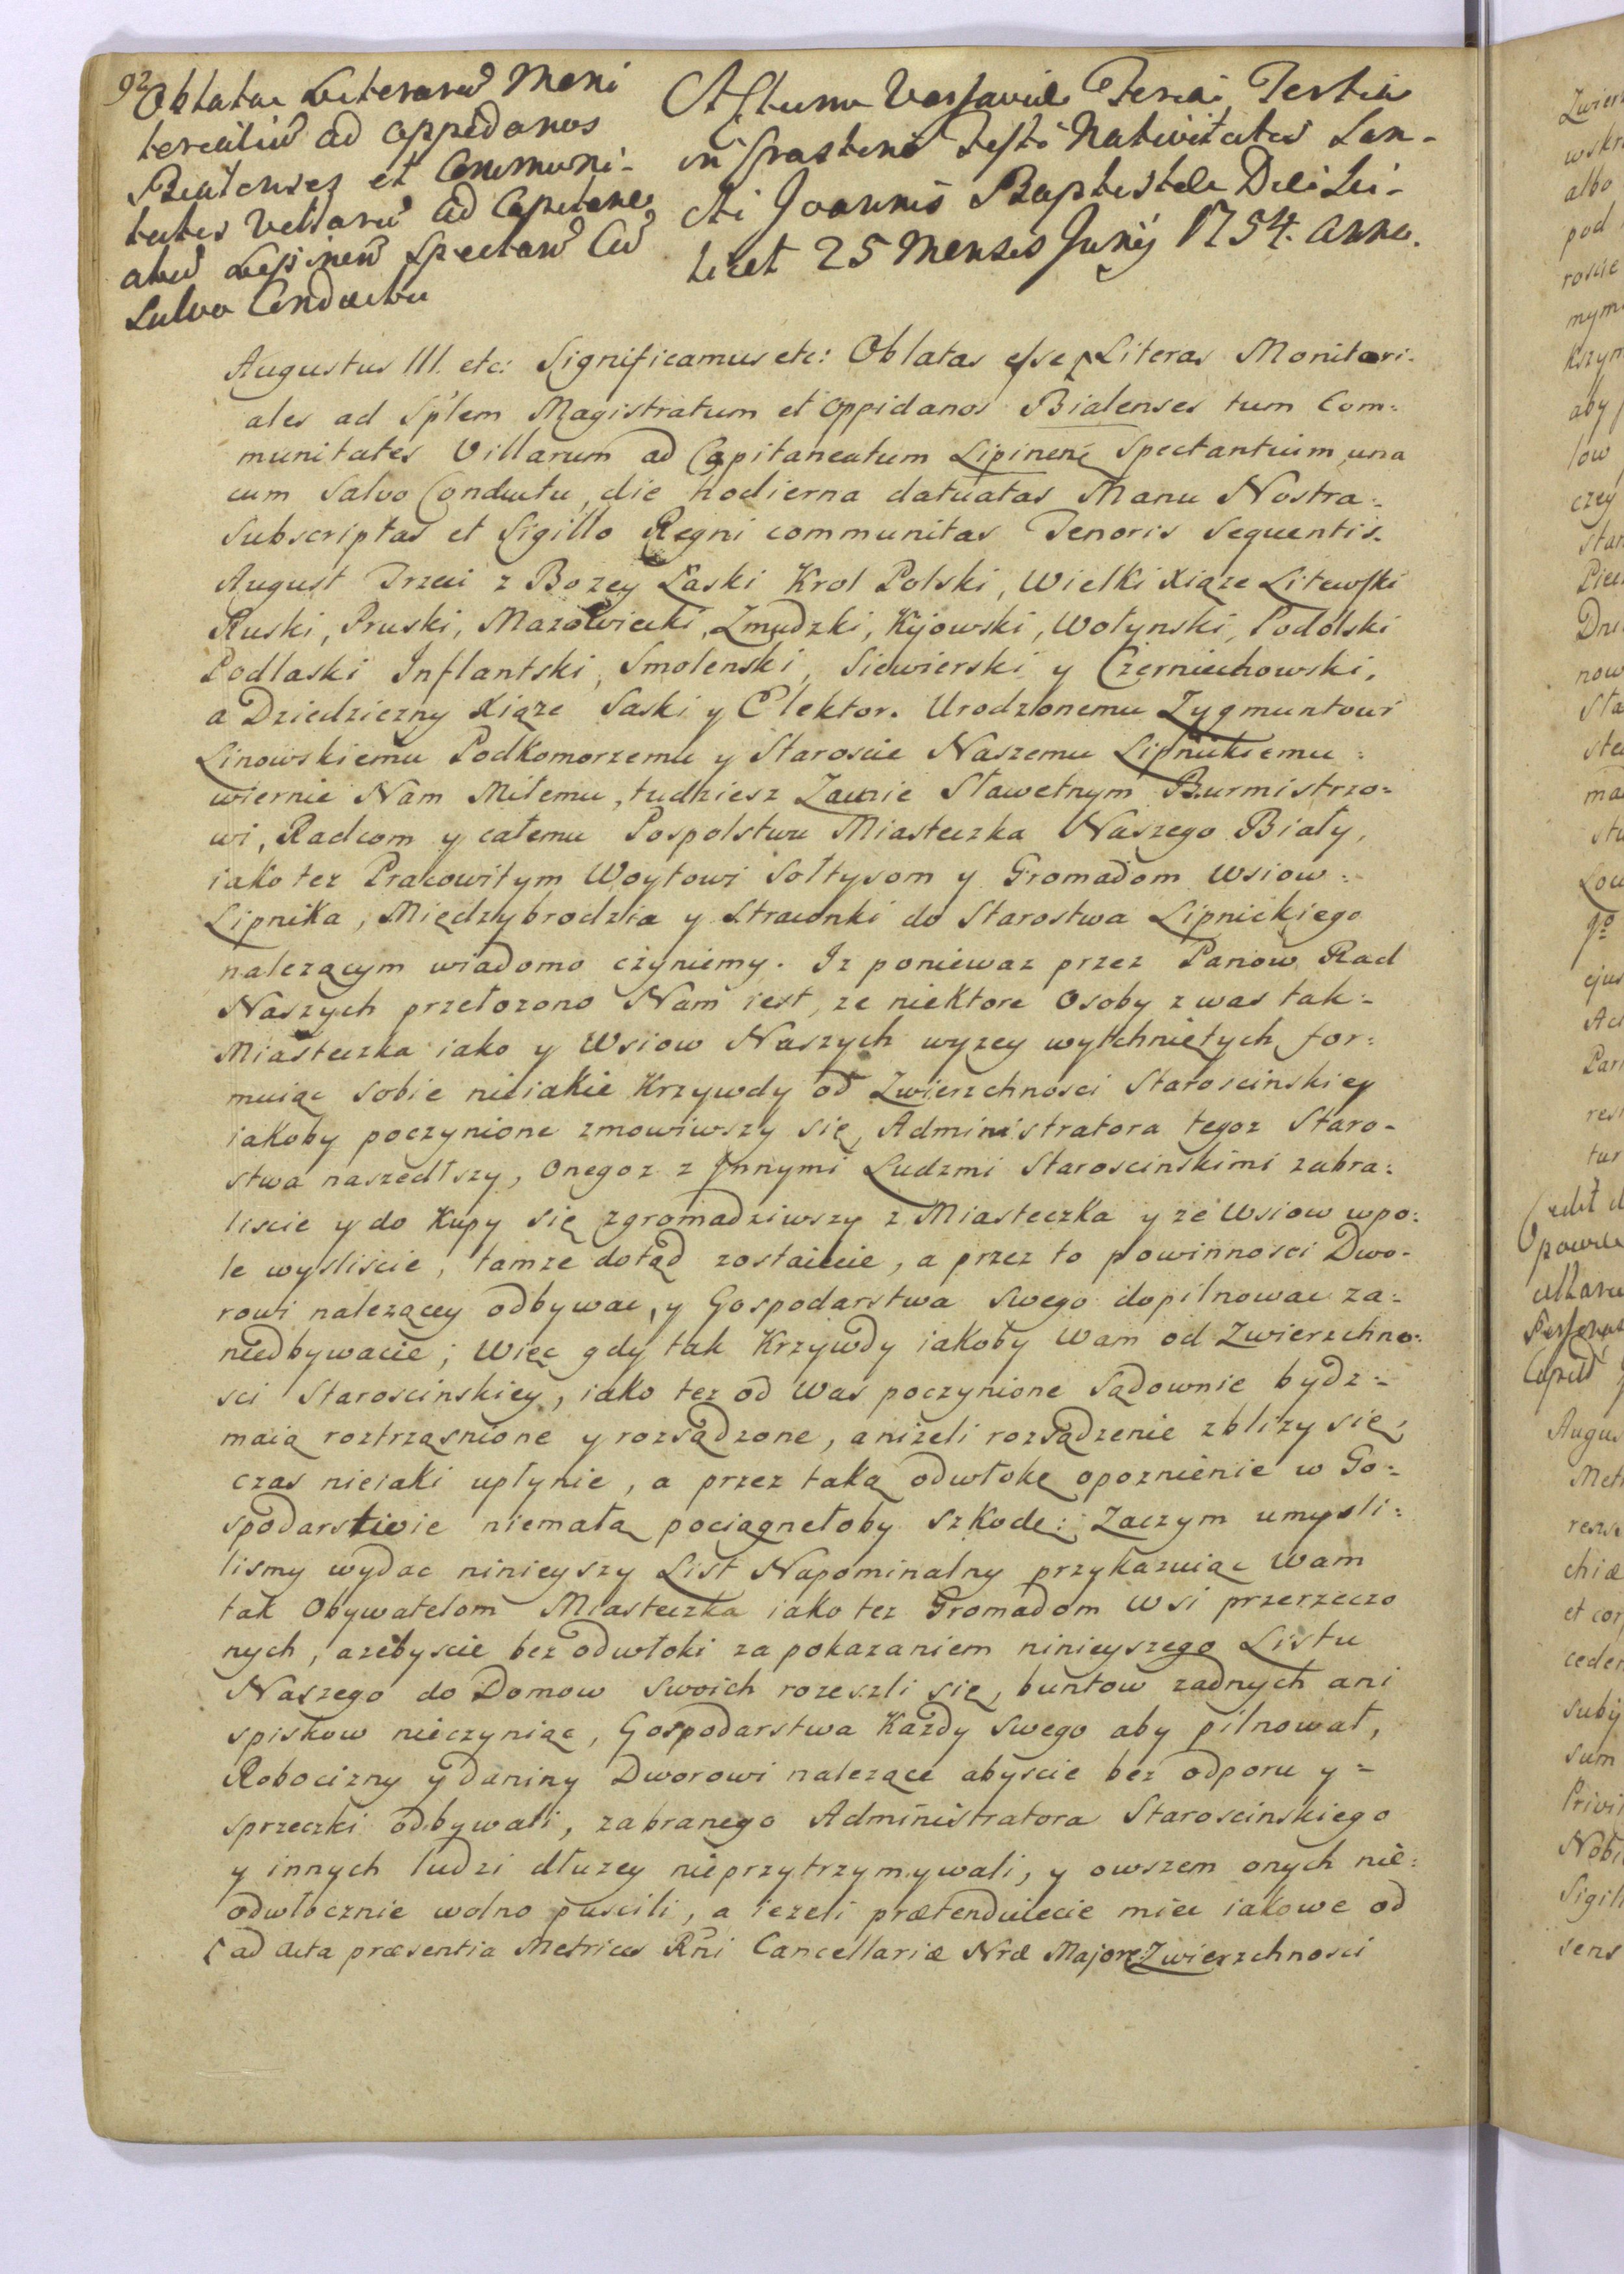 92
Oblatae Literarũ Moni
torialiũ ad oppidanos
Bialenses et Communi-
tates Villarũ ad Capitane
atũ Lipinen Spectanũ Cũ
Salvo Conductu
Actum Varsaviae Feria Tertia
in Crastino Festi Nativitatis San-
cti Joannis Baptistae Die Sci-
licet 25 Mensis Junÿ 1754. anno.
Augustus III. etc: Significamus etc: Oblatas esse Literas Monitori-
ales ad Splem Magistratum et Oppidanos Bialenses tum Com:
munitates Villarum ad Capitaneatum Lipinenẽ Spectantium, una
cum Salvo Conductu, die hodierna datuatas Manu Nostra:
Subscriptas et Sigillo Regni communitas Tenoris Sequentis.
August Trzeci z Bozey Łaski Krol Polski, Wielki Xiąze Litewski
Ruski, Pruski, Mazowiecki, Zmudzki, Kijowski, Wołynski, Podolski
Podlaski Inflantski, Smolenski, Siewierski y Czerniechowski,
a Dziedziczny Xiąze Saski y Elektor. Urodzonemu Zygmuntowi
Linowskiemu Podkomorzemu y Staroscie Naszemu Lipnickiemu:
wiernie Nam Miłemu, tudziesz Zacnie Sławetnym Burmistrzo=
wi, Radcom y całemu Pospolstwu Miasteczka Naszego Biały,
iako tez Pracowitym Woytowi Sołtysom y Gromadom Wsiow:
Lipnika, Międzybrodzia y Straconki do Starostwa Lipnickiego
nalezącym wiadomo czyniemy. Iz poniewaz przez Panow Rad
Naszych przełozono Nam iest, ze niektore Osoby z was tak:
Miasteczka iako y Wsiow Naszych wyzey wytchniętych for:
muiąc sobie nieiakie Krzywdy od Zwierzchnosci Staroscinskiey
iakoby poczynione zmowiwszy się, Administratora tegoz Staro-
stwa naszedłszy, Onegoz z Jnnymi Ludzmi Staroscinskimi zabra:
liscie y do Kupy się zgromadziwszy z Miasteczka y ze Wsiow wpo:
le wysliscie, tamze dotąd zostaiecie, a przez to powinnosci Dwo-
rowi nalezącey odbywac, y Gospodarstwa Swego dopilnowac za:
niedbywacie; Więc gdy tak Krzywdy iakoby Wam od Zwierzchno:
sci Staroscinskiey, iako tez od Was poczynione Sądownie bydz:
maią roztrząsnione y rozsądzone, a nizeli rozsądzenie zblizy się,
czas nieiaki upłynie, a przez taką odwłokę opoznienie w Go:
spodarstwie niemałą pociągnełoby szkodę: Zaczym umysli:
lismy wydac ninieyszy List Napominalny przykazuiąc Wam
tak Obywatelom Miasteczka iako tez Gromadom Wsi przerzeczo
nych, azebyscie bez odwłoki za pokazaniem ninieyszego Listu
Naszego do Domow Swoich rozeszli się, buntow zadnych ani
spiskow nieczyniąc, Gospodarstwa Kazdy Swego aby pilnował,
Robocizny y daniny Dworowi nalezące abyscie bez odporu y=
sprzeczki odbywali, zabranego Administratora Staroscinskiego
y innych ludzi dłuzey nieprzytrzymywali, y owszem onych nie:
odwłocznie wolno puscili, a iezeli prætenduiecie miec iakowe od
ad Acta præsentia Metrices Rñi Cancellariæ Nræ Majoris Zwierzchnosci